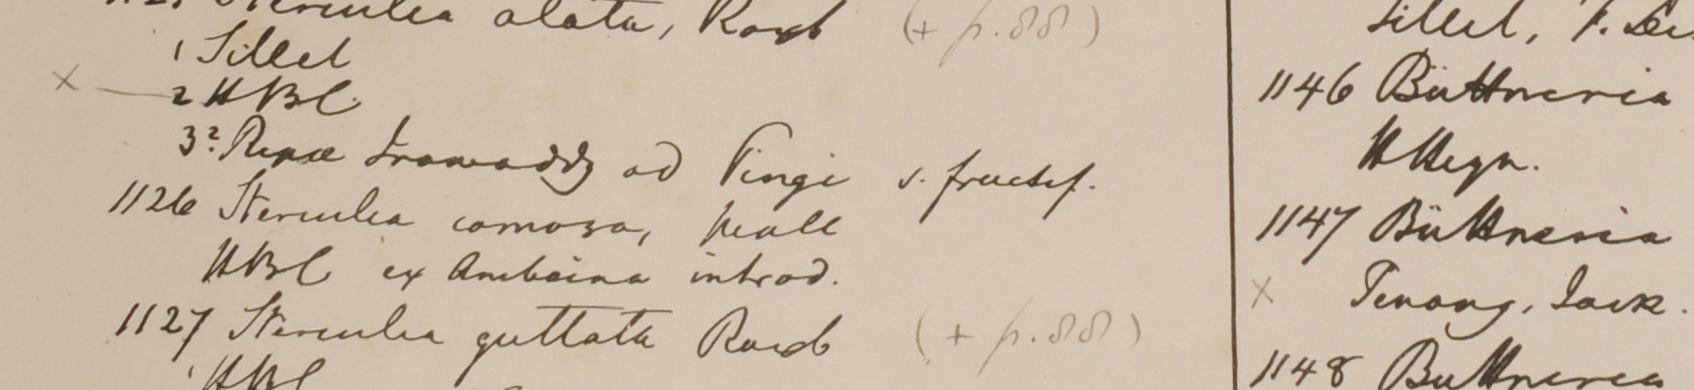 1125 Sterculia alata, Roxb (+ p. 88)
1 Sillet
× 2 HBC.
3? Ripae Irawaddy ad Pingi s. fructif.
1126 Sterculia comosa, Wall
HBC ex Amboina introd.
1127 Sterculia guttata Roxb (+ p. 88)
1 HBC
Sillet, F. De
1146 Büttneria
HHeyn.
1147 Büttneria
× Penang, Jack.
1148 Buttneria